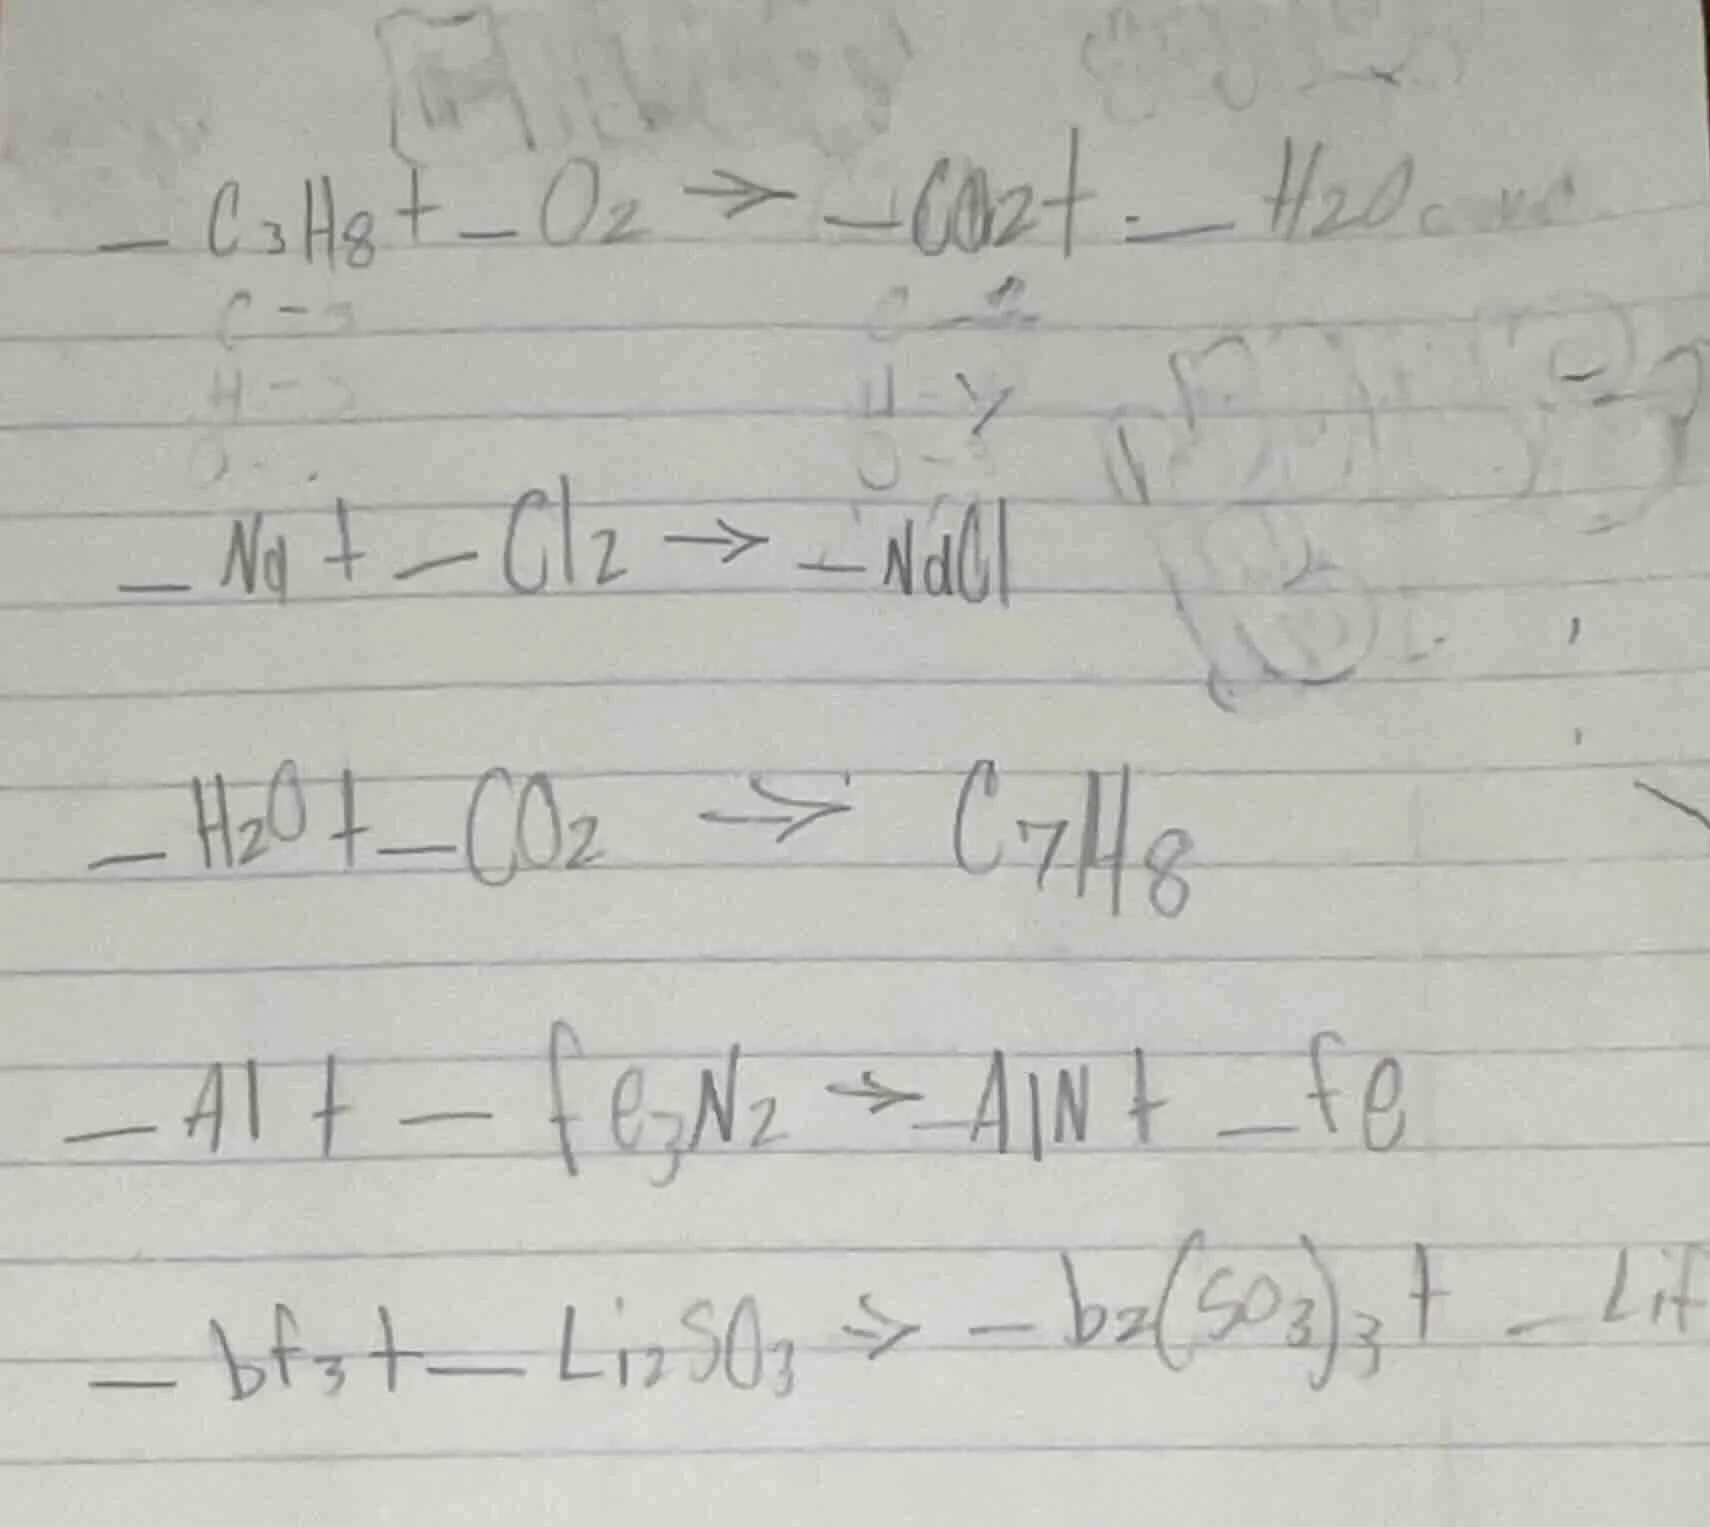 _ C3H8 + _ O2 → _ CO2 + _ H2O
C - 3
H - Y
_ Na + _ Cl2 → _ NaCl
_ H2O + _ CO2 → C7H8
_ Al + _ fe3N2 → _ AlN + _ fe
_ bf3 + _ Li2SO3 → _ b2(SO3)3 + _ Lif